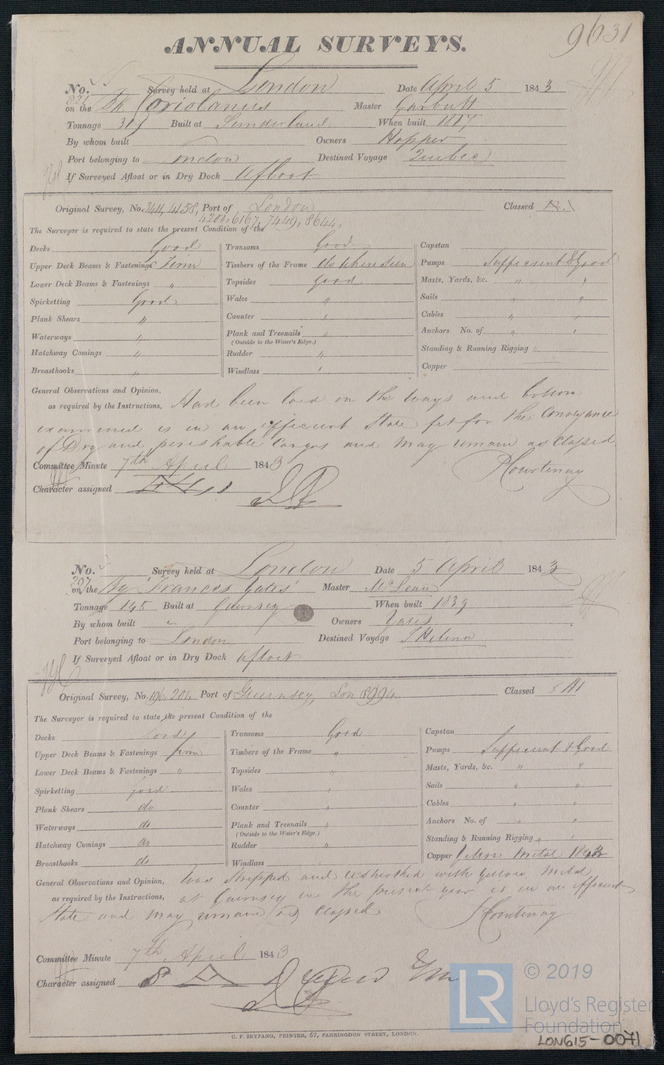 9631
ANNUAL SURVEYS.
No. Survey held at London Date April 5 1843
on the Coriolanus Master Garbutt
Tonnage Built at Sunderland When built
By whom built Owners Hopper
Port belonging to London Destined Voyage Quebec
If Surveyed Afloat or in Dry Dock Afloat
Original Survey, No. Port of London Classed
4208, 6167, 7449, 8644
The Surveyor is required to state the present Condition of the
Decks Good
Upper Deck Beams & Fastenings Firm
Lower Deck Beams & Fastenings "
Spirketting Good
Plank Shears "
Waterways "
Hatchway Comings "
Breasthooks "
Transoms Good
Timbers of the Frame do where seen
Topsides Good
Wales "
Counter "
Plank and Treenails "
(Outside to the Water's Edge.)
Rudder "
Windlass "
Capstan
Pumps Sufficient & Good
Masts, Yards, &c. " "
Sails "
Cables " "
Anchors No. of " "
Standing & Running Rigging
Copper
General Observations and Opinion, Had been laid on the ways and bottom
as required by the Instructions, examined is in an efficient State fit for the Conveyance
of Dry and perishable Cargos and may remain as Classed
Committee Minute 7th April 1843 Courtenay
Character assigned
No. Survey held at London Date 5 April 1843
on the 'Frances Yates' Master McLean
Tonnage 145 Built at Guernsey When built 1839
By whom built Owners Yates
Port belonging to London Destined Voyage St Helena
If Surveyed Afloat or in Dry Dock Afloat
Original Survey, No. Port of Guernsey, Lon 8994 Classed
The Surveyor is required to state the present Condition of the
Decks Good
Upper Deck Beams & Fastenings Firm
Lower Deck Beams & Fastenings "
Spirketting good
Plank Shears do
Waterways do
Hatchway Comings do
Breasthooks do
Transoms Good
Timbers of the Frame "
Topsides "
Wales "
Counter "
Plank and Treenails "
(Outside to the Water's Edge.)
Rudder "
Windlass
Capstan
Pumps Sufficient & Good
Masts, Yards, &c. " "
Sails " "
Cables " "
Anchors No. of " "
Standing & Running Rigging " "
Copper Yellow Metal
General Observations and Opinion, Was Stripped and resheathed with Yellow Metal
as required by the Instructions, at Guernsey in the present year is in an efficient
State and may remain as Classed Courtenay
Committee Minute 7th April 1843
Character assigned
C. F. SEYFANG, PRINTER, 57, FARRINGDON STREET, LONDON.
LR © 2019
Lloyd's Register
Foundation
LON615-0071